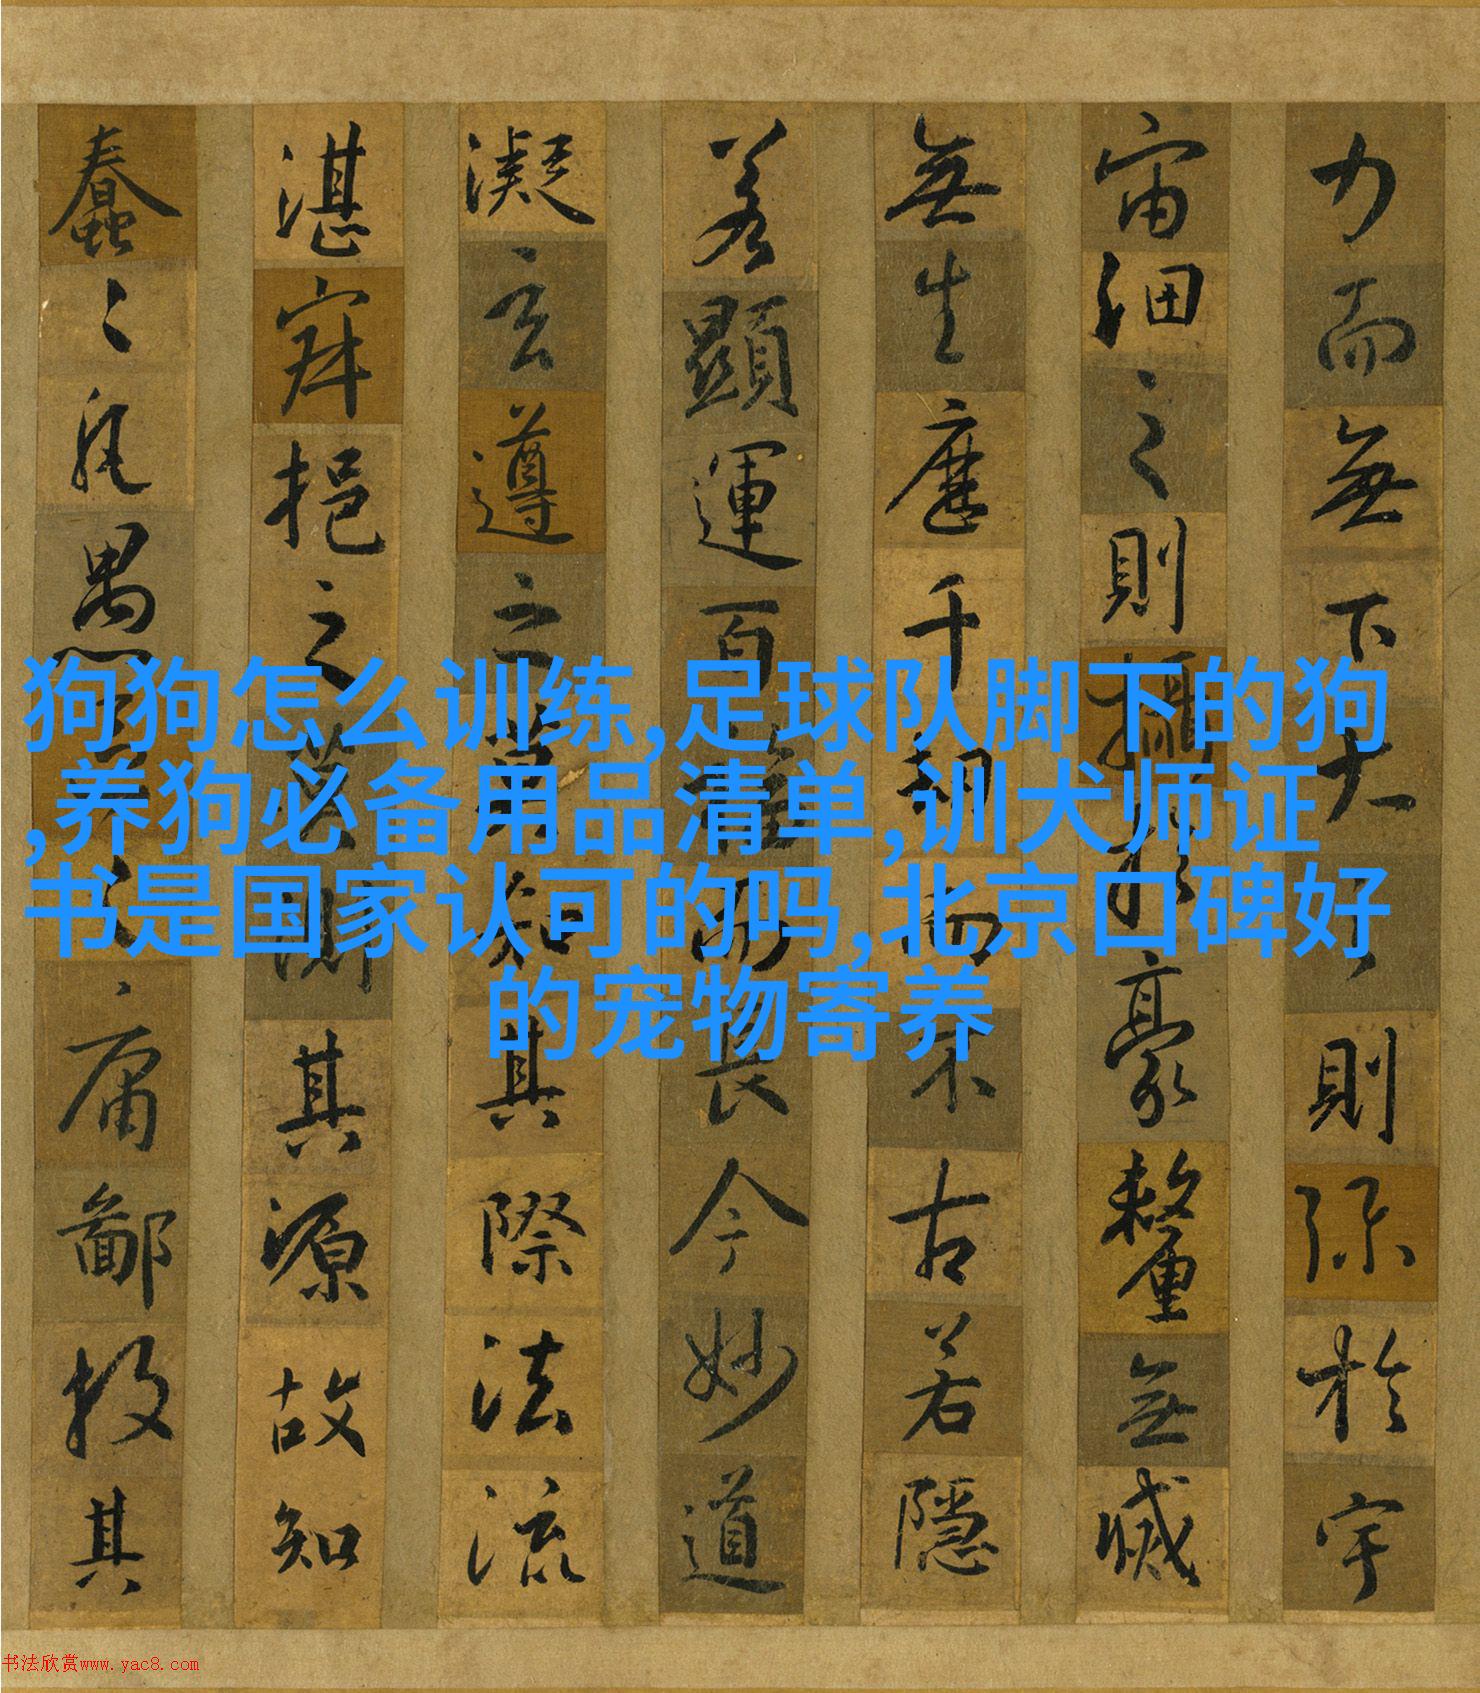 力而無下大之則弥於宇
宙細之則攝於豪釐無滅
無生歷千劫而不古若隱
若顯運百福而長今妙道
凝玄遵之莫知其際法流
湛寂挹之莫測其源故知
蠢〻凡愚區〻庸鄙投其
狗狗怎么训练,足球队脚下的狗
,养狗必备用品清单,训犬师证
书是国家认可的吗,北京口碑好
的宠物寄养
书法欣赏www.yac8.com